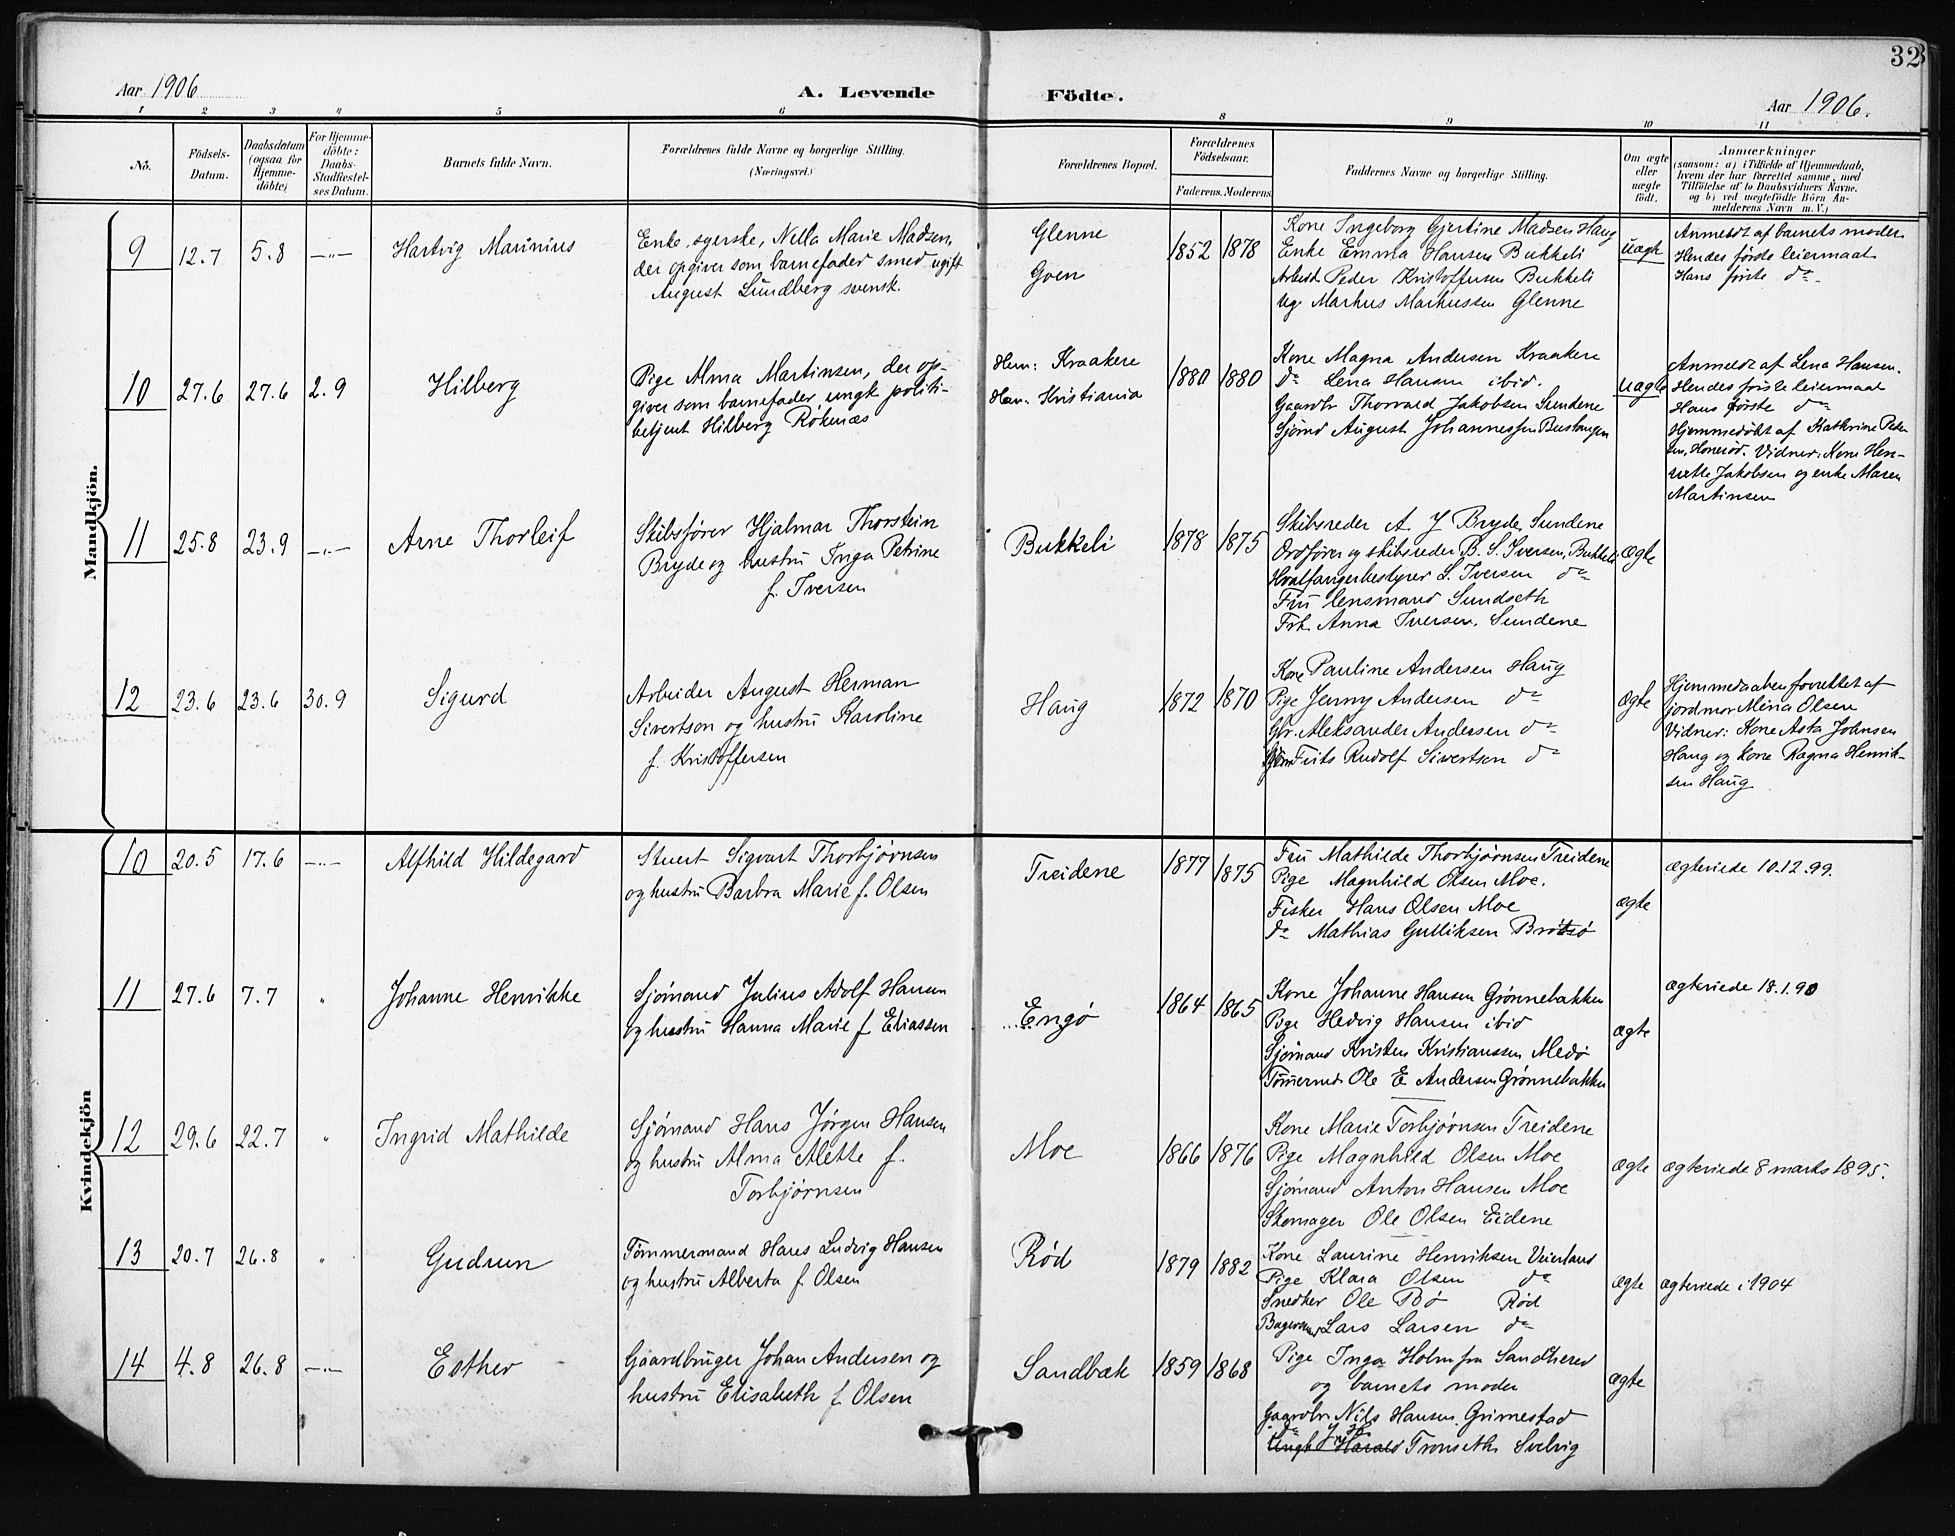 32
Aar 1906
A. Levende
Födte.
Aar 1906.
1 2 3 4 5 6 8 9 10 11
No.
Födsels-Datum.
Daabsdatum (ogsaa for Hjemme-döbte)
For Hjemme-döbte: Daabs-Stadfæstel-ses Datum.
Barnets fulde Navn.
Forældrenes fulde Navne og borgerlige Stilling.
(Næringsvei.)
Forældrenes Bopæl.
Forældrenes Födselsaar.
Faderens. Moderens.
Faddernes Navne og borgerlige Stilling.
Om ægte eller uægte födt.
Anmærkninger
(saasom: a) i Tilfælde af Hjemmedaab,
hvem der har forrettet samme, med
Tilföielse af to Daabsvidners Navne.
og b) ved uægtefödte Börn An-
melderens Navn m. V.)
Mandkjön.
9 12.7 5.8 —"— Hartvig Marinius
Enke, syerske, Nella Marie Madsen,
der opgiver som barnefader smed ugift
August Lundberg svensk.
Glenne
Goen
1852 1878
Kone Ingeborg Gjertine Madsen Haug
Enke Emma Hansen Bukkeli
Arbeid. Peder Kristoffersen Bukkeli
Ug. Markus Markussen Glenne
uægte
Anmeldt af barnets moder
Hendes første leiermaal
Hans første do
10 27.6 27.6 2.9 Hilberg
Pige Alma Martinsen, der op-
giver som barnefader ungk. politi-
betjent Hilberg Røkenæs
Hen: Kraakere
Han: Kristiania
1880 1880
Kone Magna Andersen Kraakere
do Lena Hansen ibid.
Gaardbr Thorvald Jakobsen Sundene
Sjømd August Johannessen Bustangen
uægte
Anmeldt af Lena Hansen.
Hendes første leiermaal
Hans første do
Hjemmedøbt af Kathrine Peder
sen, Honerød. Vidner: Kone Hen-
riette Jakobsen og enke Maren
Martinsen
11 25.8 23.9 —"— Arne Thorleif
Skibsfører Hjalmar Thorstein
Bryde og hustru Inga Petrine
f. Iversen
Bukkeli
1878 1875
Skibsreder A. J Bryde, Sundene
Ordfører og skibsreder B. S. Iversen, Bukkeli
Hvalfangerbestyrer L. Iversen do
Fru lensmand Sundseth
Frk. Anna Iversen, Sundene
ægte
12 23.6 23.6 30.9 Sigurd
Arbeider August Herman
Sivertson og hustru Karoline
f. Kristoffersen
Haug
1872 1870
Kone Pauline Andersen Haug
Pige Jenny Andersen do
Gbr. Aleksander Andersen do
Sjøm Frits Rudolf Sivertsen do
ægte
Hjemmedaaben forrettet af
jordmor Mina Olsen
Vidner: Kone Asta Johnsen
Haug og kone Ragna Henrik-
sen Haug
Kvindekjön
10 20.5 17.6 —"— Alfhild Hildegard
Stuert Sigvart Thorbjørnsen
og hustru Barbra Marie f. Olsen
Treidene
1877 1875
Fru Mathilde Thorbjørnsen Treidene
Pige Magnhild Olsen Moe.
Fisker Hans Olsen Moe
do Mathias Gulliksen Brøtsø
ægte
ægteviede 10.12.99.
11 27.6 7.7 " Johanne Henrikke
Sjømand Julius Adolf Hansen
og hustru Hanna Marie f Eliassen
Engø
1864 1865
Kone Johanne Hansen Grønnebakken
Pige Hedvig Hansen ibid
Sjømand Kristen Kristianssen Medø
Tømermd. Ole E Andersen Grønnebakken
ægte
ægteviede 18.1.90
12 29.6 22.7 " Ingrid Mathilde
Sjømand Hans Jørgen Hansen
og hustru Alma Alette f.
Torbjørnsen
Moe
1866 1876
Kone Marie Torbjørnsen Treidene
Pige Magnhild Olsen Moe
Sjømand Anton Hansen Moe
Skomager Ole Olsen Eidene
ægte
ægteviede 8 marts 1895.
13 20.7 26.8 " Gudrun
Tømmermand Hans Ludvig Hansen
og hustru Alberta f. Olsen
Rød
1879 1882
Kone Laurine Henriksen Veierland
Pige Klara Olsen do
Snedker Ole Bø Rød
Lars Larsen do
ægte
ægteviede i 1904
14 4.8 26.8 —"— Esther
Gaardbruger Johan Andersen og
hustru Elisabeth f. Olsen
Sandbæk
1859 1868
Pige Inga Holm fra Sandhered
og barnets moder
Gaardbr Nils Hansen. Grimestad
Ungk Harald Tronseth Svelvig
ægte